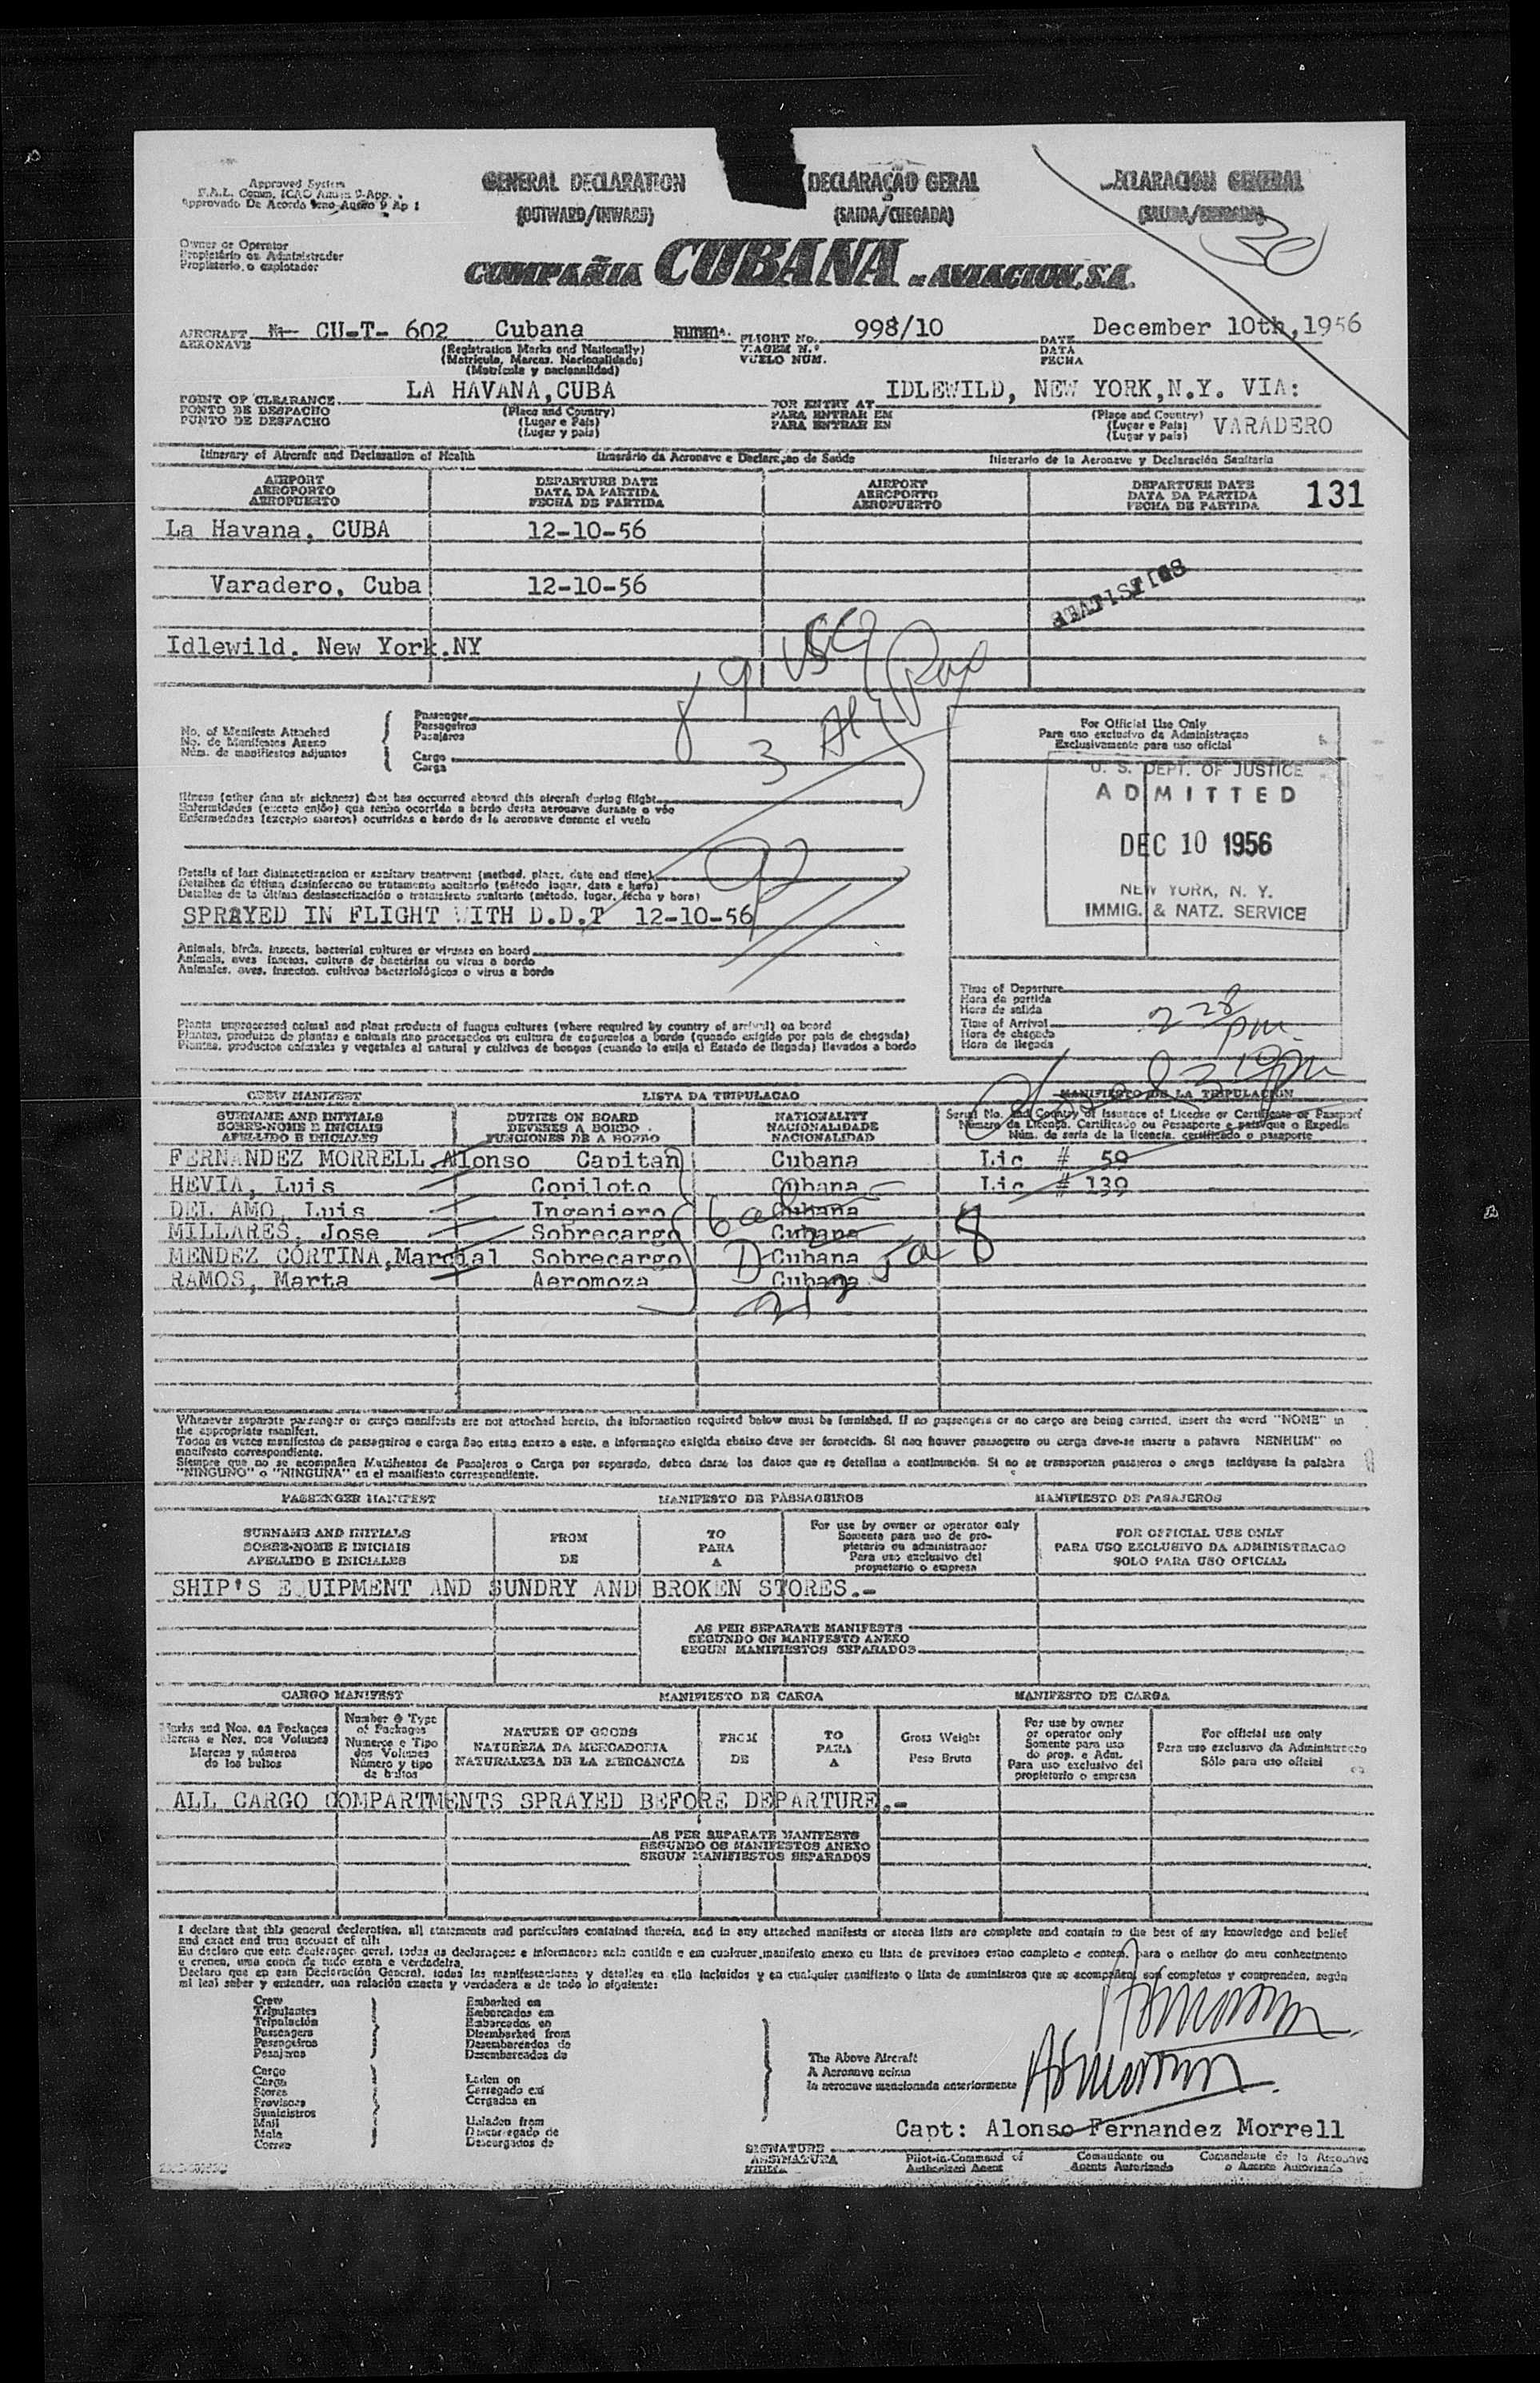 Approved System
F.A.L. Comm. ICAO Annex 9-App.
Approvado De Acordo Anexo 9 Ap 1
GENERAL DECLARATION
(OUTWARD/INWARD)
DECLARAÇÃO GERAL
(SAIDA/CHEGADA)
DECLARACION GENERAL
(SALIDA/ENTRADA)
30
Owner or Operator
Propietário ou Administrador
Propietario o explotador
COMPAÑIA CUBANA DE AVIACION, S.A.
AIRCRAFT CU-T- 602 Cubana FLIGHT No. 998/10 DATE December 10th, 1956
AERONAVE (Registration Marks and Nationally) VIAGEM N.º DATA
(Matricula, Marcas, Nacionalidade) VUELO NUM. FECHA
(Matricula y nacionalidad)
POINT OF CLEARANCE LA HAVANA, CUBA FOR ENTRY AT IDLEWILD, NEW YORK, N.Y. VIA:
PONTO DE DESPACHO (Place and Country) PARA ENTRAR EM (Place and Country) VARADERO
PUNTO DE DESPACHO (Lugar e País) PARA ENTRAR EN (Lugar e País)
(Lugar y país) (Lugar y país)
Itinerary of Aircraft and Declaration of Health Itinerário da Aeronave e Declaração de Saúde Itinerario de la Aeronave y Declaración Sanitaria
AIRPORT DEPARTURE DATE AIRPORT DEPARTURE DATE 131
AEROPORTO DATA DA PARTIDA AEROPORTO DATA DA PARTIDA
AEROPUERTO FECHA DE PARTIDA AEROPUERTO FECHA DE PARTIDA
La Havana, CUBA 12-10-56
Varadero, Cuba 12-10-56
STATISTICS
Idlewild. New York.NY
9 USC
3 Al Pax
No. of Manifests Attached
No. de Manifestos Anexo
Núm. de manifiestos adjuntos
Passenger
Passageiros
Pasajeros
Cargo
Carga
For Official Use Only
Para uso exclusivo da Administraçao
Exclusivamente para uso oficial
U. S. DEPT. OF JUSTICE
ADMITTED
DEC 10 1956
NEW YORK, N. Y.
IMMIG. & NATZ. SERVICE
Illness (other than air sickness) that has occurred aboard this aircraft during flight
Enfermidades (exceto enjôo) que tenha ocorrido a bordo desta aeronave durante o vôo
Enfermedades (excepto mareos) ocurridas a bordo de la aeronave durante el vuelo
Details of last disinsectizacion or sanitary treatment (method, place, date and time)
Detalhes da última desinfercao ou tratamento sanitario (método lugar, data e hora)
Detalles de la última desinsectización o tratamiento sanitario (método, lugar, fecha y hora)
SPRAYED IN FLIGHT WITH D.D.T 12-10-56
Animals, birds, insects, bacterial cultures or viruses on board
Animais, aves insetos, cultura de bactérias ou virus a bordo
Animales, aves, insectos, cultivos bacteriológicos o virus a bordo
Time of Departure
Hora da partida
Hora de salida
Time of Arrival 2 28 pm
Hora da chegada
Hora de llegada
Plants unprocessed animal and plant products of fungus cultures (where required by country of arrival) on board
Plantas, produtos de plantas e animais nao processados ou cultura de cogumelos a bordo (quando exigido por pais de chegada)
Plantas, productos animales y vegetales al natural y cultivos de hongos (cuando lo exija el Estado de llegada) llevados a bordo
CREW MANIFEST LISTA DA TRIPULACAO MANIFIESTO DE LA TRIPULACION
SURNAME AND INITIALS DUTIES ON BOARD NATIONALITY Serial No. and Country of Issuance of License or Certificate or Passport
SOBRE-NOME E INICIAIS DEVERES A BORDO NACIONALIDADE Número da Licença, Certificado ou Passaporte e país que o Expediu
APELLIDO E INICIALES FUNCIONES DE A BORDO NACIONALIDAD Núm. de serie de la licencia, certificado o pasaporte
FERNANDEZ MORRELL Alonso Capitan Cubana Lic # 59
HEVIA, Luis Copiloto Cubana Lic # 139
DEL AMO, Luis Ingeniero Cubana
MILLARES, Jose Sobrecargo Cubana
MENDEZ CORTINA, Marcial Sobrecargo Cubana
RAMOS, Marta Aeromoza Cubana
Whenever separate passenger or cargo manifests are not attached hereto, the information required below must be furnished. If no passengers or no cargo are being carried, insert the word "NONE" in
the appropriate manifest.
Todas as vezes manifestos de passageiros e carga não estao anexo a este, a informaçao exigida abaixo deve ser fornecida. Si nao houver passageiro ou carga deve-se inserir a palavra NENHUM" no
manifesto correspondente.
Siempre que no se acompañen Manifiestos de Pasajeros o Carga por separado, deben darse los datos que se detallan a continuación. Si no se transportan pasajeros o carga inclúyase la palabra
"NINGUNO" o "NINGUNA" en el manifiesto correspondiente.
PASSENGER MANIFEST MANIFESTO DE PASSAGEIROS MANIFIESTO DE PASAJEROS
SURNAME AND INITIALS FROM TO For use by owner or operator only FOR OFFICIAL USE ONLY
SOBRE-NOME E INICIAIS PARA Somente para uso de propietario ou administrador PARA USO EXCLUSIVO DA ADMINISTRACAO
APELLIDO E INICIALES DE A Para uso exclusivo del propietario o empresa SOLO PARA USO OFICIAL
SHIP'S EQUIPMENT AND SUNDRY AND BROKEN STORES.-
AS PER SEPARATE MANIFESTS
SEGUNDO OS MANIFESTO ANEXO
SEGUN MANIFIESTOS SEPARADOS
CARGO MANIFEST MANIFIESTO DE CARGA MANIFESTO DE CARGA
Marks and Nos. on Packages Number & Type of Packages NATURE OF GOODS FROM TO Gross Weight For use by owner or operator only For official use only
Marcas e Nos. nos Volumes Numeros e Tipo dos Volumes NATUREZA DA MERCADORIA PARA Somente para uso do prop. e Adm. Para uso exclusivo da Administracao
Marcas y números de los bultos Número y tipo de bultos NATURALEZA DE LA MERCANCIA DE A Peso Bruto Para uso exclusivo del propietario o empresa Sólo para uso oficial
ALL CARGO COMPARTMENTS SPRAYED BEFORE DEPARTURE.-
AS PER SEPARATE MANIFESTS
SEGUNDO OS MANIFESTOS ANEXO
SEGUN MANIFIESTOS SEPARADOS
I declare that this general declaration, all statements and particulars contained therein, and in any attached manifests or stores lists are complete and contain to the best of my knowledge and belief
and exact and true account of all:
Eu declaro que esta declaraçao geral, todas as declaraçoes e informacoes nela contida e em cualquer manifesto anexo ou lista de previsoes estao completo e contem, para o melhor do meu conhecimento
e crenca, uma conta de tudo exata e verdadeira.
Declaro que en esta Declaración General, todas las manifestaciones y detalles en ella incluidos y en cualquier manifiesto o lista de suministros que se acompañen, son completos y comprenden, según
mi leal saber y entender, una relación exacta y verdadera a de todo lo siguiente:
Crew Embarked on
Tripulantes Embarcados em
Tripulación Embarcados en
Passengers Disembarked from
Passageiros Desembarcados de
Pasajeros Desembarcados de
Cargo Laden on
Carga Carregado em
Stores Cargados en
Provisoes
Suministros
Mail Unladen from
Mala Descarregado de
Correo Descargados de
The Above Aircraft
A Aeronave acima
la aeronave mencionada anteriormente
Capt: Alonso Fernandez Morrell
SIGNATURE
ASSINATURA
FIRMA
Pilot-in-Command of Comandante ou Comandante de la Aeronave
Authorized Agent Agente Autorizado o Agente Autorizado